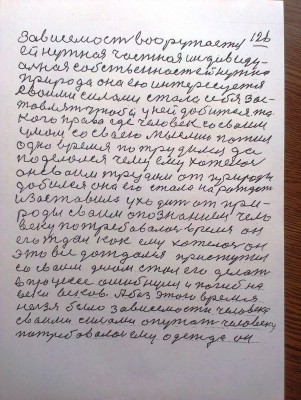 126
Зависемость воорутаету
ей нутная частная индивиду-
альная собственность ей нутна
природа она ею интересуется
своими силами стала себя зас-
тавлять чтобы у ней добится та-
кого права где человек со своим
умом со своею мыслию пожил
одно время потрудился да
поделался чему ему хотелос
он своим трудом от природы
добился она его стала нарождат
и заставила уходит от при-
роды своим опознанием чело
веку потребовалос время он
его ждал как ему хотелос он
это все дождался приступил
со своим днем стал его делат
в процессе ошибнулся и погиб на
веки веков. А без этого время
нельзя было зависемость человека
своими силами опутат человеку
потребовалос ему одежда он